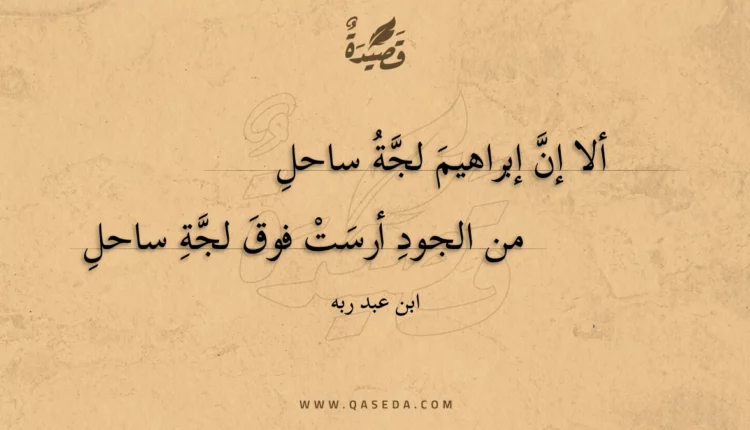 قَصِيْدَةٌ
ألا إنَّ إبراهيمَ لجَّةُ ساحلِ
من الجودِ أرسَتْ فوقَ لجَّةِ ساحلِ
ابن عبد ربه
WWW.QASEDA.COM